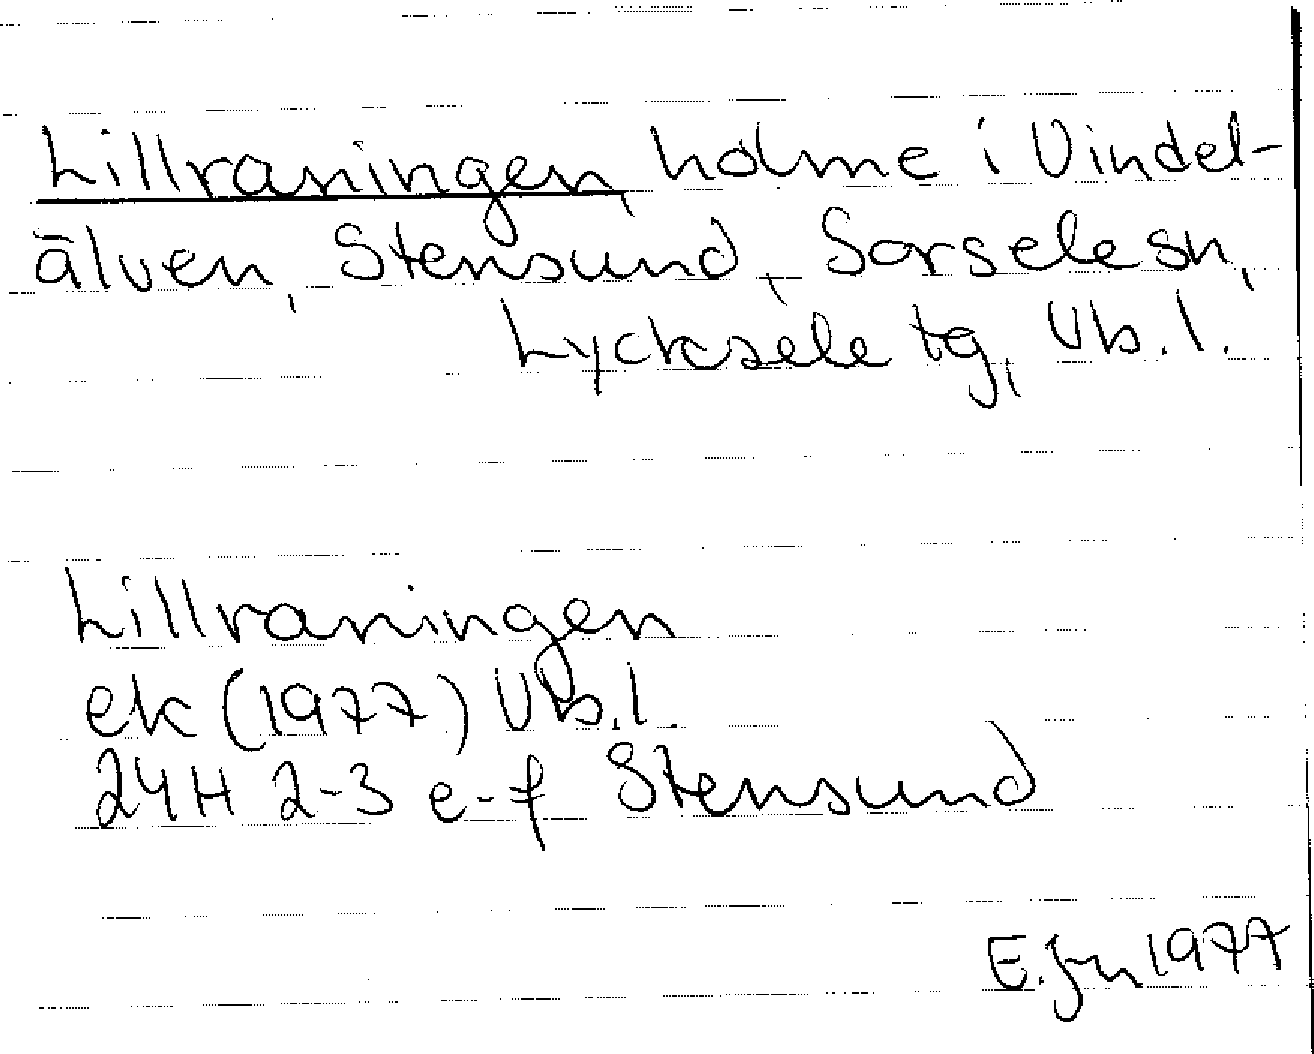 Lillraningen, holme i Vindel-
älven, Stensund, Sorsele sn,
Lycksele tg, Vb. l.
Lillraningen
ek (1977) Vb. l.
24H 2-3 e-f Stensund
E. Jn 1977